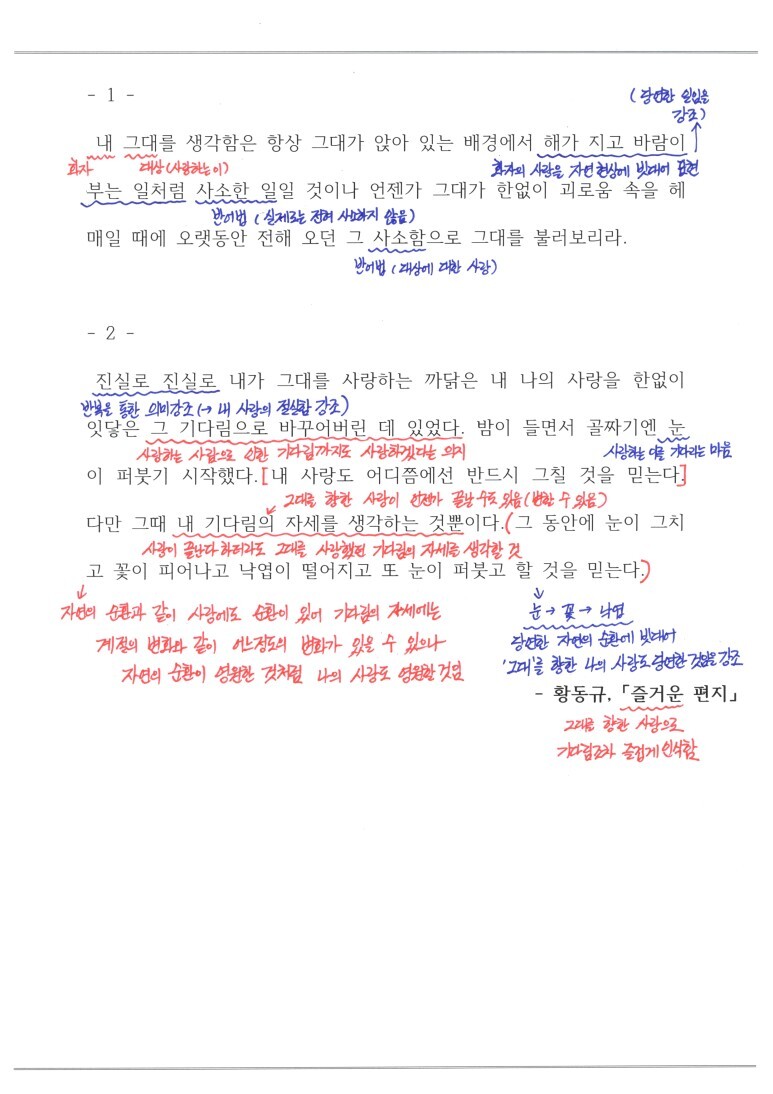 - 1 -
(당연한 일임을
강조)
내 그대를 생각함은 항상 그대가 앉아 있는 배경에서 해가 지고 바람이
화자 대상(사랑하는 이) 화자의 사랑을 자연 현상에 빗대어 표현
부는 일처럼 사소한 일일 것이나 언젠가 그대가 한없이 괴로움 속을 헤
반어법 (실제로는 전혀 사소하지 않음)
매일 때에 오랫동안 전해 오던 그 사소함으로 그대를 불러보리라.
반어법 (대상에 대한 사랑)
- 2 -
진실로 진실로 내가 그대를 사랑하는 까닭은 내 나의 사랑을 한없이
반복을 통한 의미강조 (→ 내 사랑의 절실함 강조)
잇닿은 그 기다림으로 바꾸어버린 데 있었다. 밤이 들면서 골짜기엔 눈
사랑하는 사람으로 인한 기다림까지도 사랑하겠다는 의지 사랑하는 이를 기다리는 마음
이 퍼붓기 시작했다. [내 사랑도 어디쯤에선 반드시 그칠 것을 믿는다.]
그대를 향한 사랑이 언젠가 끝날 수도 있음 (변할 수 있음)
다만 그때 내 기다림의 자세를 생각하는 것뿐이다. (그 동안에 눈이 그치
사랑이 끝난다 하더라도 그대를 사랑했던 기다림의 자세를 생각할 것
고 꽃이 피어나고 낙엽이 떨어지고 또 눈이 퍼붓고 할 것을 믿는다.)
자연의 순환과 같이 사랑에도 순환이 있어 기다림의 자세에는
계절의 변화와 같이 어느정도의 변화가 있을 수 있으나
자연의 순환이 영원한 것처럼 나의 사랑도 영원한 것임
눈 → 꽃 → 낙엽
당연한 자연의 순환에 빗대어
'그대'를 향한 나의 사랑도 당연한 것임을 강조
- 황동규, 「즐거운 편지」
그대를 향한 사랑으로
기다림조차 즐겁게 인식함